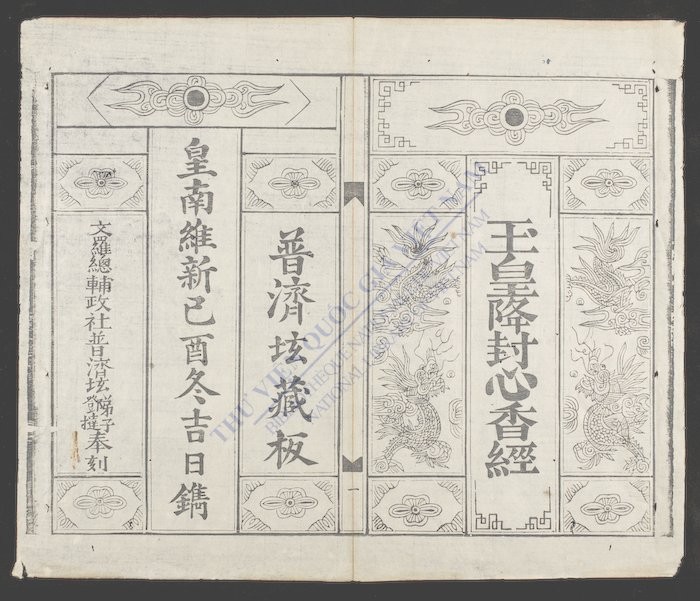 玉皇降封心香經
一
普濟坛藏板
皇南維新己酉冬吉日鐫
文羅總輔政社普濟坛子奉刻
THƯ VIỆN QUỐC GIA VIỆT NAM
BIBLIOTHEQUE NATIONALE DU VIETNAM
NATIONAL LIBRARY OF VIETNAM